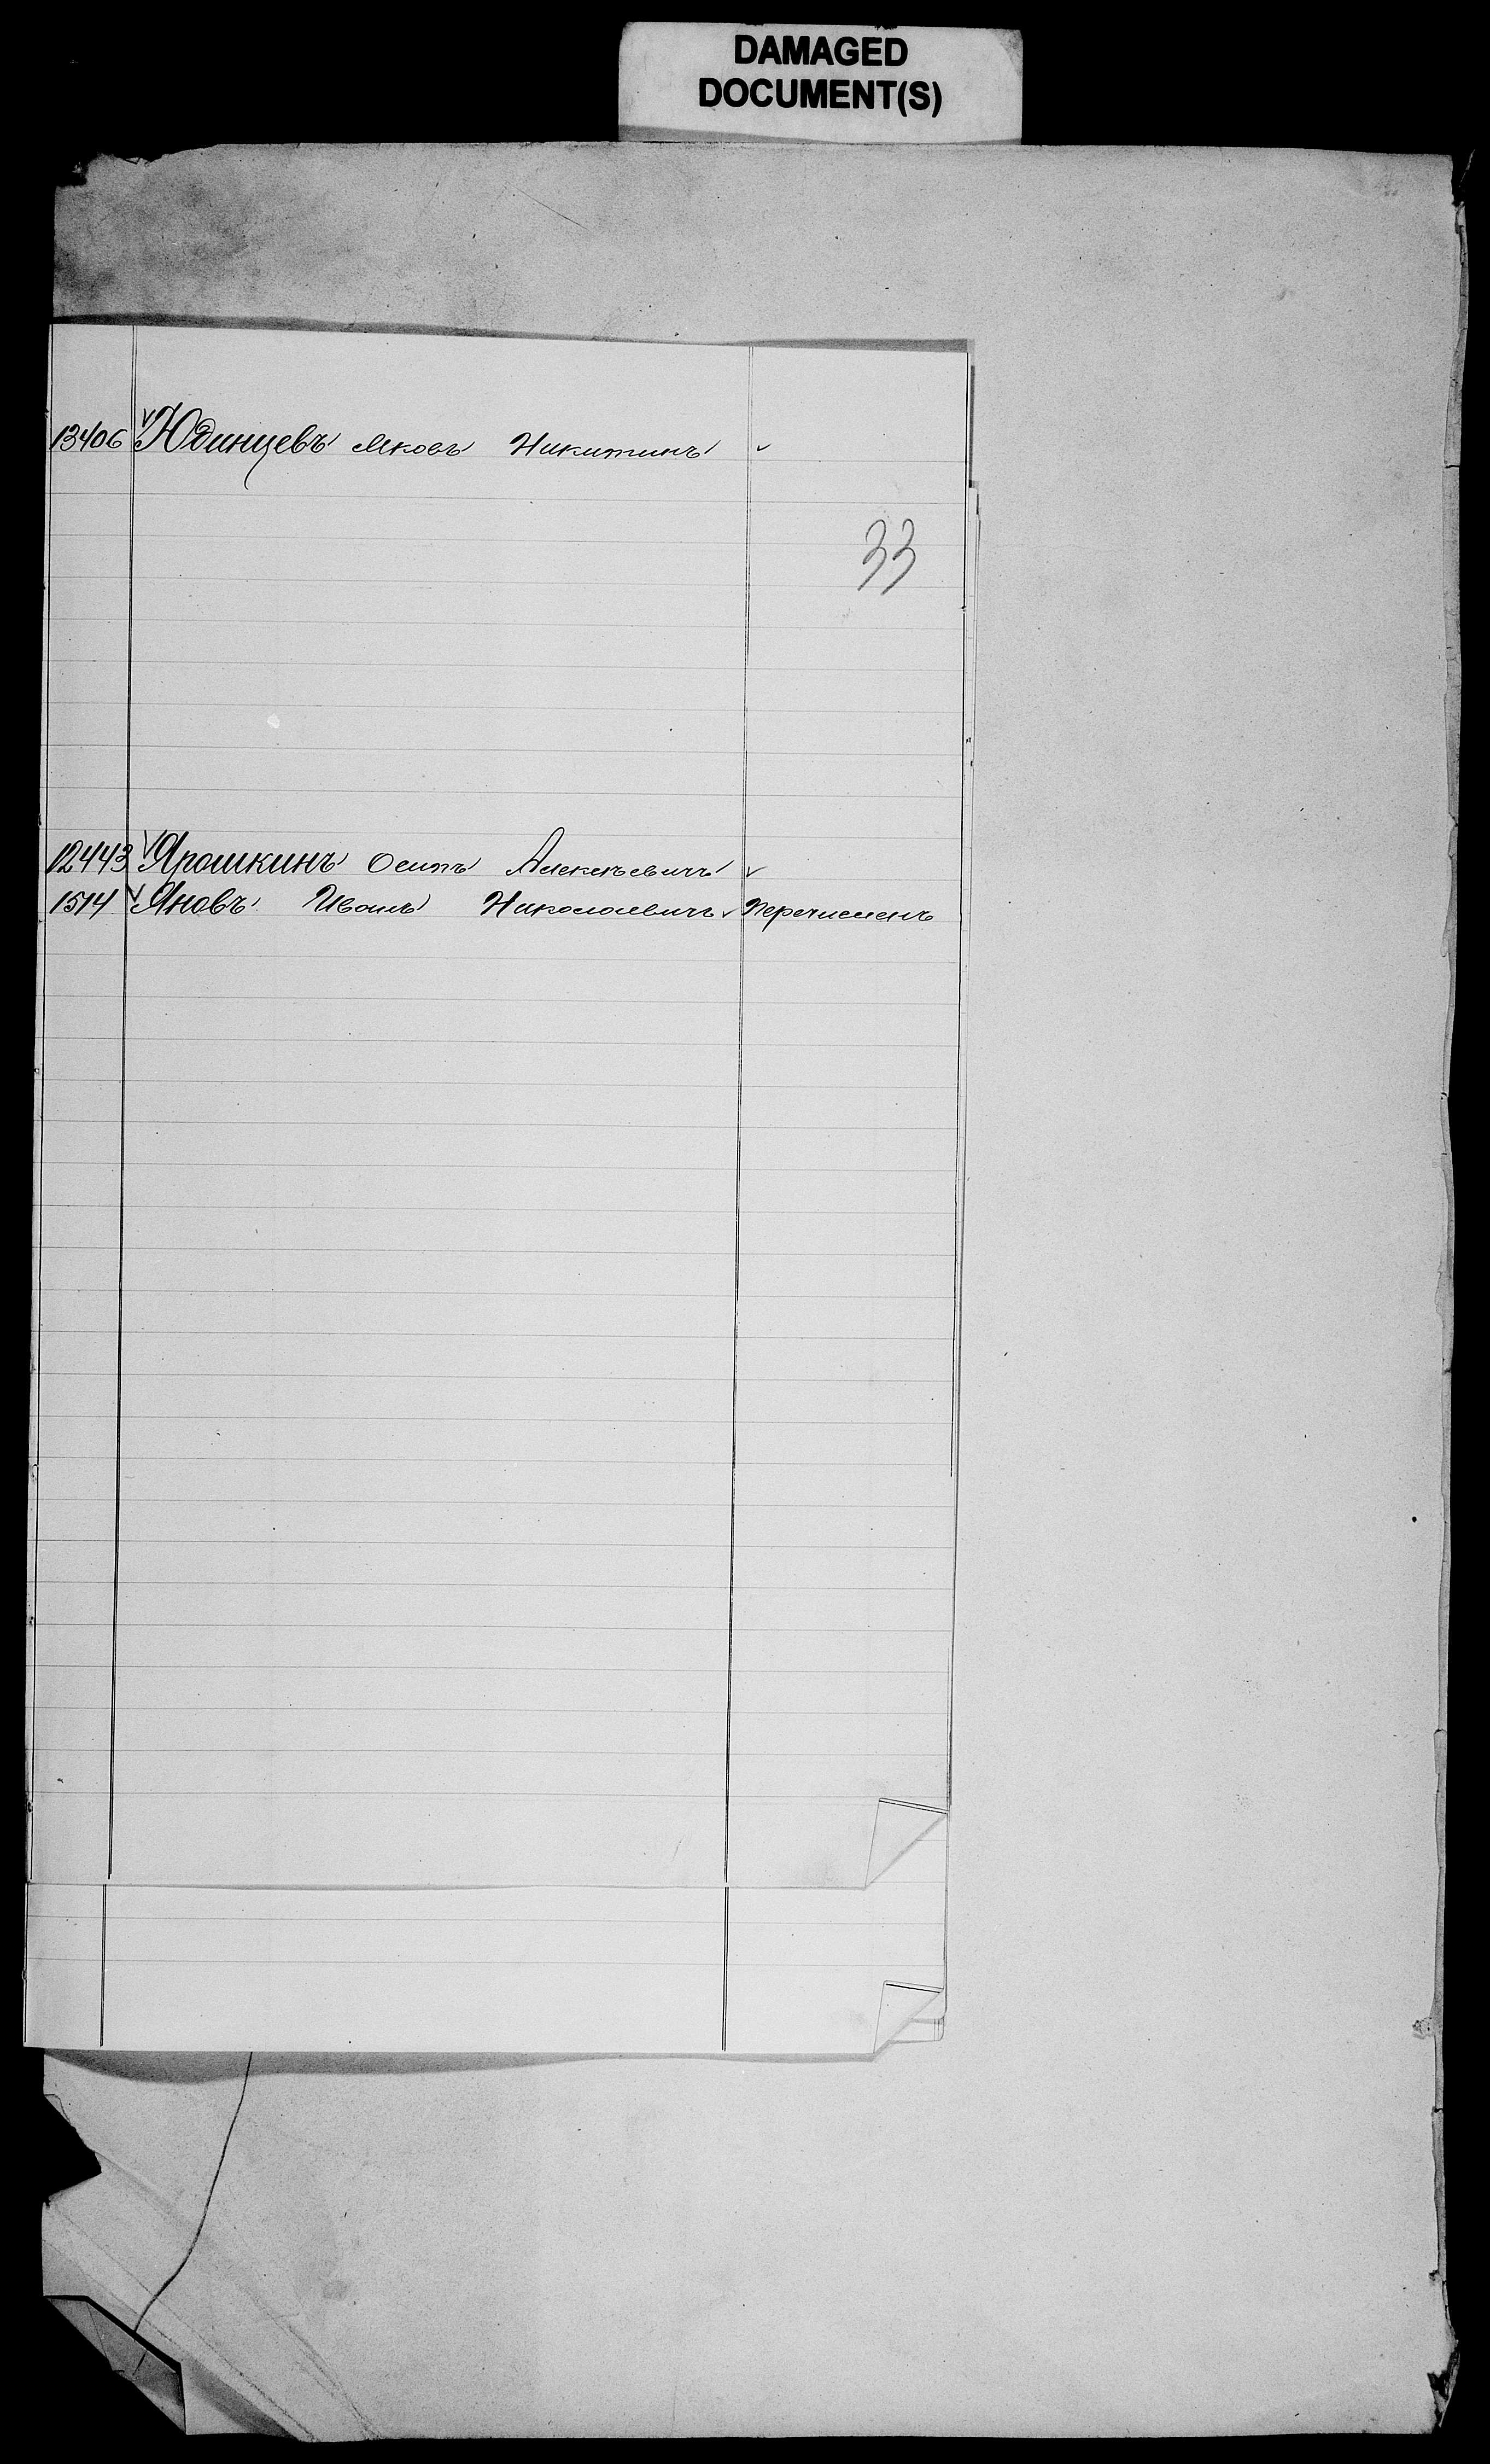 DAMAGED
DOCUMENT(S)
13406 Юдинцевъ Яковъ Никитинъ
33
12443 Ярошкинъ Осипъ Алексѣевичъ
1514 Яновъ Иванъ Николаевичъ Перечисленъ